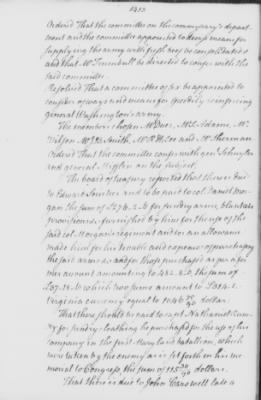 Ordered That the committee on the commissary's depart-
ment and the committee appointed to devise means for
supplying the army with fresh meat be consolidated
and that Mr Trumbull be directed to confer with the
said committee
Resolved That a committee of six be appointed to
consider of ways and means for speedily reinforcing
general Washington's army.
The members chosen Mr Duer, Mr S. Adams, Mr
Wilson, Mr Smith, Mr R. H. Lee and Mr Sherman
Ordered That the committee confer with genl Johnston
and general Mifflin on the subject.
The board of treasury reported that there is due
to Edward Smith and to be paid to col. Danl Mor-
gan the sum of for sundry arms, blankets
provisions furnished by him for the use of the
said col. Morgan's regiment and for an allowance
made him for his trouble and expences of purchasing
the said arms and for those purchased as per a for-
mer account amounting to the sum of
which two sums amount to
Virginia currency equal to dollars.
That there should be paid to capt Nathaniel
for sundry cloathing he purchased for the use of his
company in the first Maryland battalion, which
were taken by the enemy as is set forth in his me-
morial to Congress, the sum of 115 30/90 dollars.
That there is due to John Carswell late a